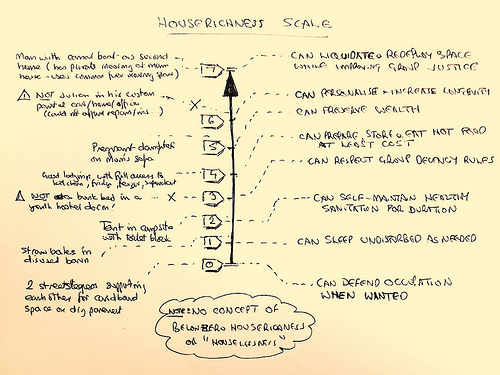 HOUSERICHNESS SCALE
Man with canal boat as second
home (has private mooring at main
house - uses common
7
CAN LIQUIDATE & REDEPLOY SPACE
WHILE IMPROVING GROUP JUSTICE
NOT Julian in his custom
painted car/home/office
(could not afford repairs/ins)
X
6
CAN PERSONALISE + INCREASE LONGEVITY
CAN PRESERVE WEALTH
Pregnant daughter
on mom's sofa
5
CAN PREPARE, STORE & EAT HOT FOOD
AT LEAST COST
Guest lodgings with full access to
kitchen, fridge, freezer,
4
CAN RESPECT GROUP DECENCY RULES
NOT a bunk bed in a
youth hostel dorm!
X
3
CAN SELF-MAINTAIN HEALTHY
SANITATION FOR DURATION
Tent in campsite
with toilet block
2
1
CAN SLEEP UNDISTURBED AS NEEDED
Straw bales in
disused barn
0
2 streetsleepers supporting
each other for cardboard
space on dry pavement
CAN DEFEND OCCUPATION
WHEN WANTED
NOTE: NO CONCEPT OF
BELOW-ZERO HOUSERICHNESS
OR "HOUSELESSNESS"